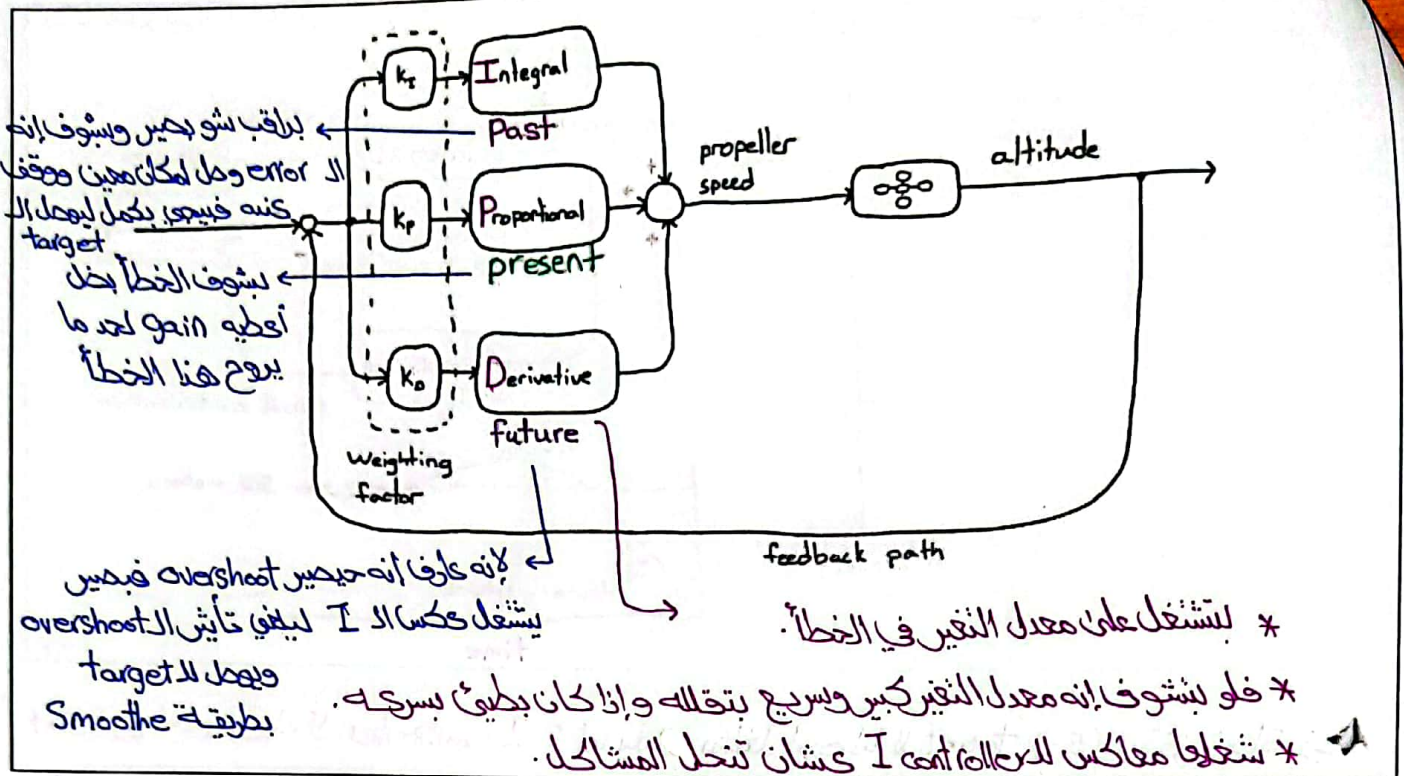 K_I
Integral
Past
براقب شو بصير وبشوف إنه
الـ error وصل لمكان معين ووقف
عنه فبيجي بكمل ليوصل الـ
target
K_P
Proportional
present
بشوف الخطأ بضل
أعطيه gain لحد ما
يروح هذا الخطأ
K_D
Derivative
future
Weighting
factor
+
+
+
-
propeller
speed
altitude
feedback path
لإنه عارف إنه حيصير overshoot فبصير
يشتغل عكس الـ I ليلغي تأثير الـ overshoot
ويوصل للـ target
بطريقة Smoothe
* بتشتغل على معدل التغير في الخطأ.
* فلو بتشوف إنه معدل التغير كبير وسريع بتقلله وإذا كان بطيئ بسرعه.
* شغلها معاكس للـ I controller عشان تنحل المشاكل.